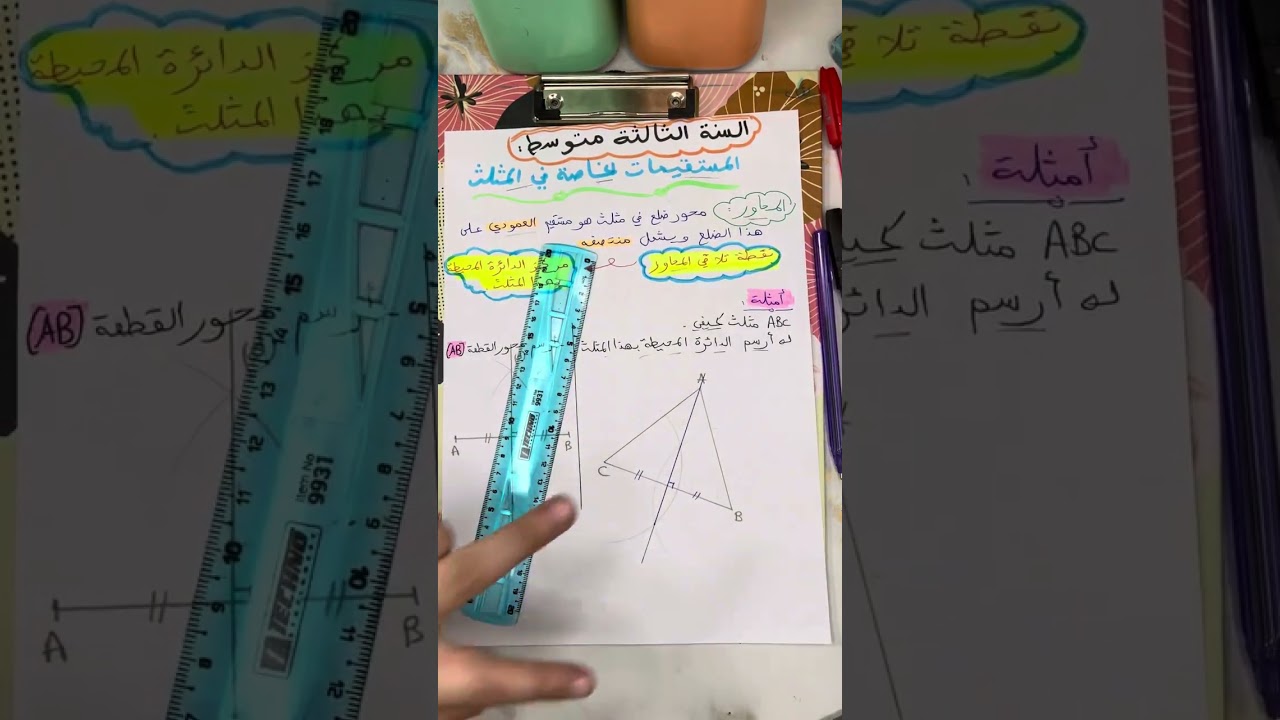 السنة الثالثة متوسط:
المستقيمات الخاصة في المثلث
المحاور: محور ضلع في مثلث هو مستقيم العمودي على
هذا الضلع ويشمل منتصفه
نقطة تلاقي المحاور
مركز الدائرة المحيطة
بهذا المثلث.
أمثلة:
ABC مثلث كيفي.
له أرسم الدائرة المحيطة بهذا المثلث
رسم محور القطعة [AB]
A
B
A
C
B
TECHNO
Item No
9931